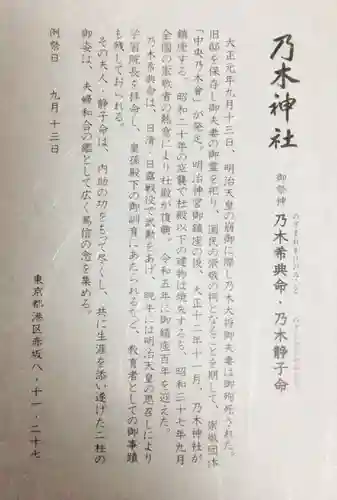 乃木神社
御祭神 乃木希典命・乃木静子命
大正元年九月十三日、明治天皇の崩御に際し乃木大将御夫妻は御殉死された。
旧邸を保存し御夫妻の御霊を祀り、国民の崇敬の祠となることを期して、崇敬団体
「中央乃木會」が発足。明治神宮御鎮座の後、大正十二年十一月、乃木神社が
鎮座する。昭和二十年の空襲で社殿以下の建物は焼失するも、昭和三十七年九月
全国の崇敬者の熱意により社殿が復興。令和五年に御鎮座百年を迎えた。
乃木希典命は、日清・日露戦役で武勲をあげ、晩年には明治天皇の思召しにより
学習院長を拝命し、皇孫殿下の御訓育にあたられるなど、教育者としての御事蹟
も残しておられる。
その夫人・静子命は、内助の功をもつて尽くし、共に生涯を添い遂げた二柱の
御姿は、夫婦和合の鑑として広く篤信の念を集める。
例祭日 九月十三日
東京都港区赤坂八・十一・二十七